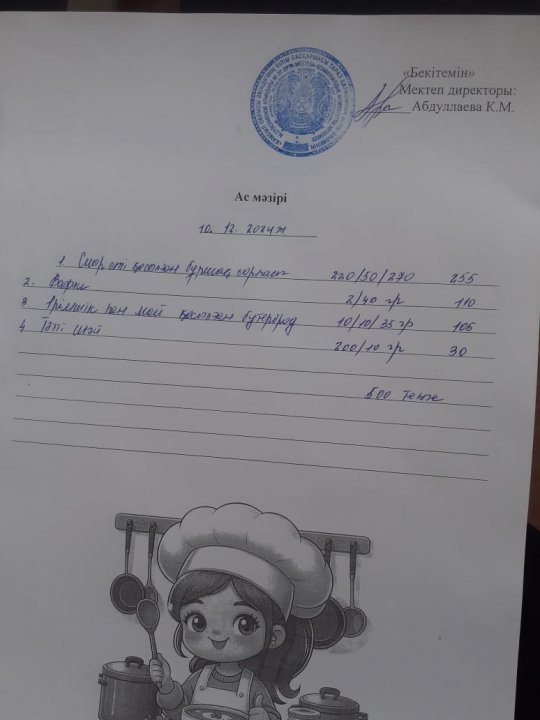 «Бекітемін»
Мектеп директоры:
Абдуллаева К.М.
Ас мәзірі
10. 12. 2024ж
1. Сиыр еті қосылған бұршақ сорпасы 220/50/270 255
2. Вафли 2/40 гр 110
3 Ірімшік пен май қосылған бутерброд 10/10/35 гр 105
4 Тәтті шәй 200/10 гр 30
500 теңге